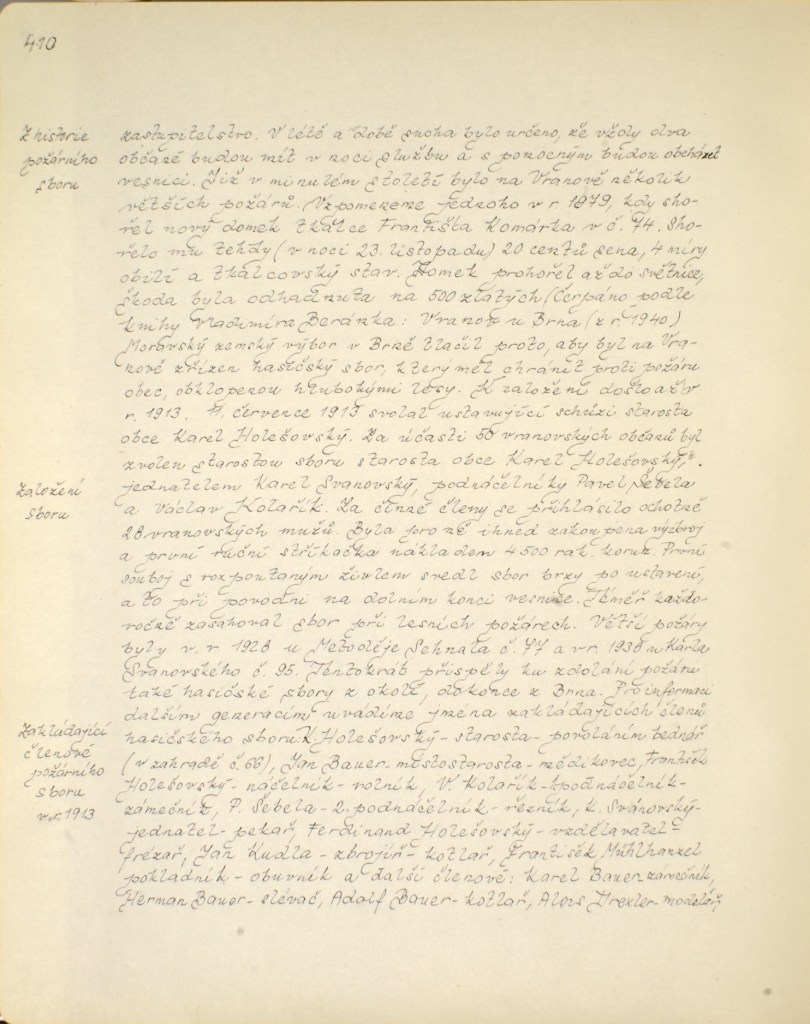 410
Z historie
požárního
sboru
zastupitelstvo. V létě a době sucha bylo určeno, že vždy dva
občané budou mít v noci službu a s ponocným budou obcházet
vesnici. Již v minulém století bylo na Vranově několik
větších požárů. Vzpomeneme jednoho v r. 1879, kdy sho-
řel nový domek tkalce Františka Komárka v č. 74. Sho-
řelo mu tehdy (v noci 23. listopadu) 20 centů sena, 4 míry
obilí a tkalcovský stav. Domek prohořel až do světnice,
škoda byla odhadnuta na 500 zlatých (Čerpáno podle
knihy Vladimíra Beránka: Vranov u Brna (z r. 1940)
Moravský zemský výbor v Brně tlačil proto, aby byl na Vra-
nově zřízen hasičský sbor, který měl chránit proti požáru
obec, obklopenou hlubokými lesy. K založení došlo až v
r. 1913. 4. července 1913 svolal ustavující schůzi starosta
obce Karel Holešovský. Za účasti 50 vranovských občanů byl
zvolen starostou sboru starosta obce Karel Holešovský,
Založení
sboru
jednatelem Karel Svanovský, podnáčelníky Pavel Šebela
a Václav Kolařík. Za činné členy se přihlásilo ochotně
28 vranovských mužů. Byla pro ně ihned zakoupena výzbroj
a první ruční stříkačka nákladem 4 500 rak. korun. První
souboj s rozpoutaným živlem svedl sbor brzy po ustavení,
a to při povodni na dolním konci vesnice. Téměř každo-
ročně zasahoval sbor při lesních požárech. Větší požáry
byly v r. 1928 u Metoděje Sehnala č. 77 a v r. 1938 u Karla
Svanovského č. 95. Tentokráte přispěly ku zdolání požáru
také hasičské sbory z okolí, dokonce z Brna. Pro informaci
dalším generacím uvádíme jména zakládajících členů
Zakládající
členové
požárního
sboru
v r. 1913
hasičského sboru K. Holešovský - starosta - povoláním bednář
(v zahradě č. 66), Jan Bauer - místostarosta - mědikovec, František
Holešovský - náčelník - rolník, V. Kolařík - 1. podnáčelník -
zámečník, P. Šebela - 2. podnáčelník - řezník, K. Svánovský -
- jednatel - pekař, Ferdinand Holešovský - vzdělavatel -
frézař, Jan Kudla - zbrojíř - kotlář, František Mühlhanzel
pokladník - obuvník a další členové: Karel Bauer
Herman Bauer - slévač, Adolf Bauer - kotlář, Alois Drexler modelář,